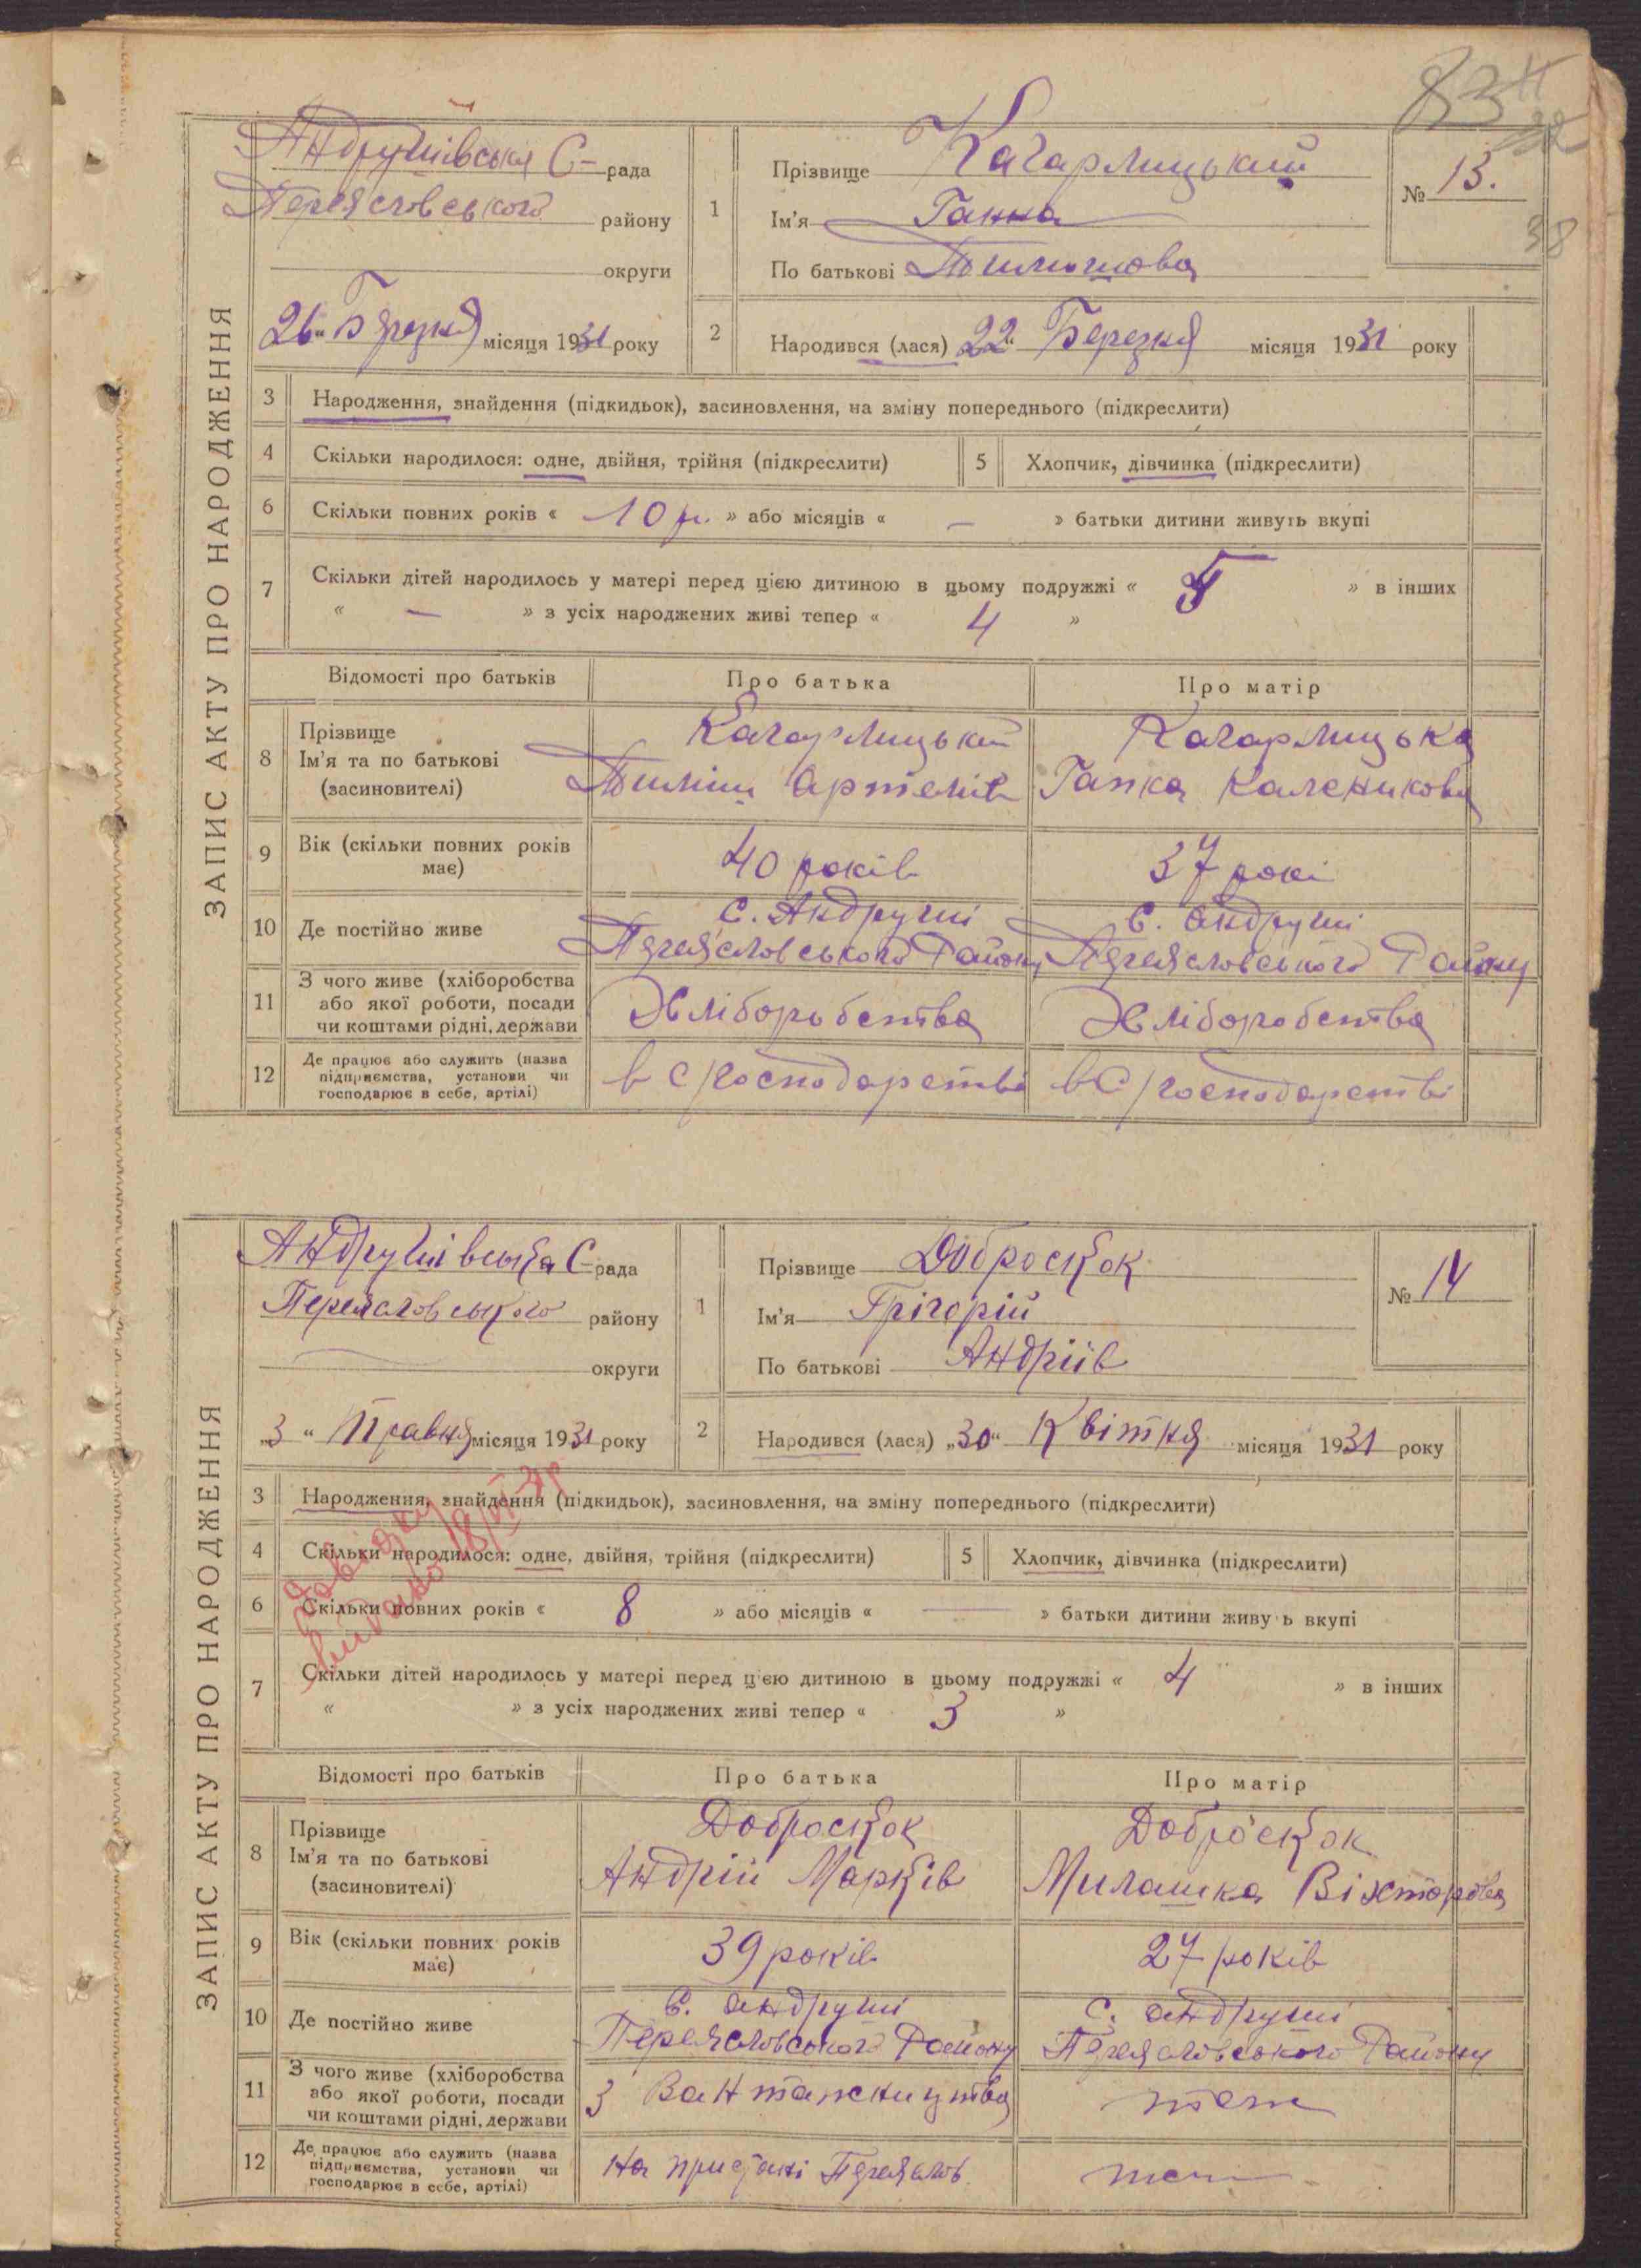 83
38
ЗАПИС АКТУ ПРО НАРОДЖЕННЯ
Андрушівська С-рада
Переяславського району
округи
26 "Березня" місяця 1931 року
1
Прізвище Кагарлицький
Ім'я Ганна
По батькові Тимошова
№ 13.
2
Народився (лася) 22 " Березня місяця 1931 року
3 Народження, знайдення (підкидьок), засиновлення, на зміну попереднього (підкреслити)
4 Скільки народилося: одне, двійня, трійня (підкреслити) 5 Хлопчик, дівчинка (підкреслити)
6 Скільки повних років « 10 р. » або місяців « — » батьки дитини живуть вкупі
7 Скільки дітей народилось у матері перед цією дитиною в цьому подружжі « 5 » в інших
« — » з усіх народжених живі тепер « 4 »
Відомості про батьків Про батька Про матір
8 Прізвище
Ім'я та по батькові
(засиновителі)
Кагарлицький
Тиміш Артемів
Кагарлицька
Гапка Каленикова
9 Вік (скільки повних років має)
40 років
37 рокі
10 Де постійно живе
с. Андруші
Переяславського Району
с. Андруші
Переяславського Району
11 З чого живе (хліборобства
або якої роботи, посади
чи коштами рідні, держави
Хліборобства
Хліборобства
12 Де працює або служить (назва
підприємства, установи чи
господарює в себе, артілі)
в с/господарстві
в с/господарстві
ЗАПИС АКТУ ПРО НАРОДЖЕННЯ
Андрушівська С-рада
Переяславського району
округи
"3" Травня місяця 1931 року
1
Прізвище Доброскок
Ім'я Грігорій
По батькові Андріїв
№ 14
2
Народився (лася) "30" Квітня місяця 1931 року
3 Народження, знайдення (підкидьок), засиновлення, на зміну попереднього (підкреслити)
4 Скільки народилося: одне, двійня, трійня (підкреслити) 5 Хлопчик, дівчинка (підкреслити)
6 Скільки повних років « 8 » або місяців « — » батьки дитини живуть вкупі
7 Скільки дітей народилось у матері перед цією дитиною в цьому подружжі « 4 » в інших
« » з усіх народжених живі тепер « 3 »
Довідку
видано
Відомості про батьків Про батька Про матір
8 Прізвище
Ім'я та по батькові
(засиновителі)
Доброскок
Андрій Марків
Доброскок
Милашка Вікторова
9 Вік (скільки повних років має)
39 років
27 років
10 Де постійно живе
с. Андруші
Переяславського Району
с. Андруші
Переяславського Району
11 З чого живе (хліборобства
або якої роботи, посади
чи коштами рідні, держави
З Вантажництва
теж
12 Де працює або служить (назва
підприємства, установи чи
господарює в себе, артілі)
На пристані Переяслов.
теж